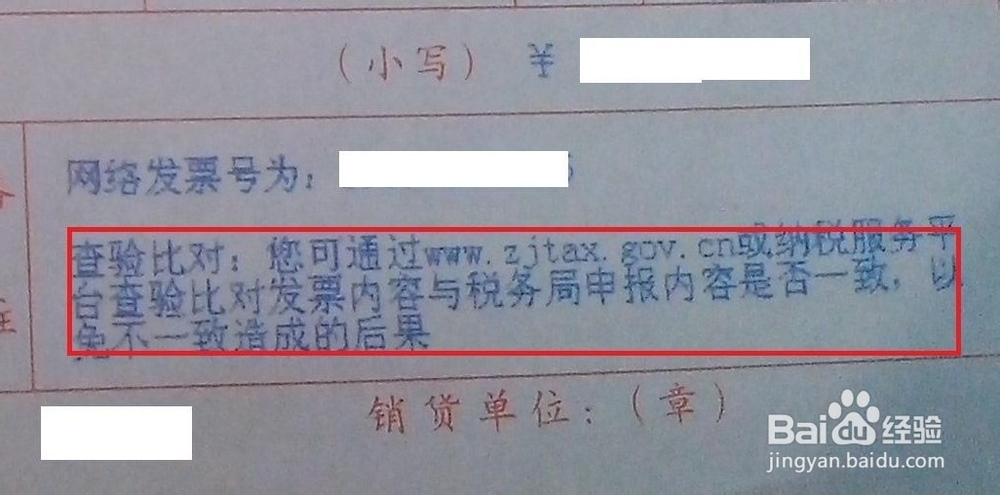 （小写） ￥
网络发票号为：
查验比对：您可通过www.zjtax.gov.cn或纳税服务平
台查验比对发票内容与税务局申报内容是否一致，以
免不一致造成的后果
注
销货单位：（章）
Baidu经验
jingyan.baidu.com